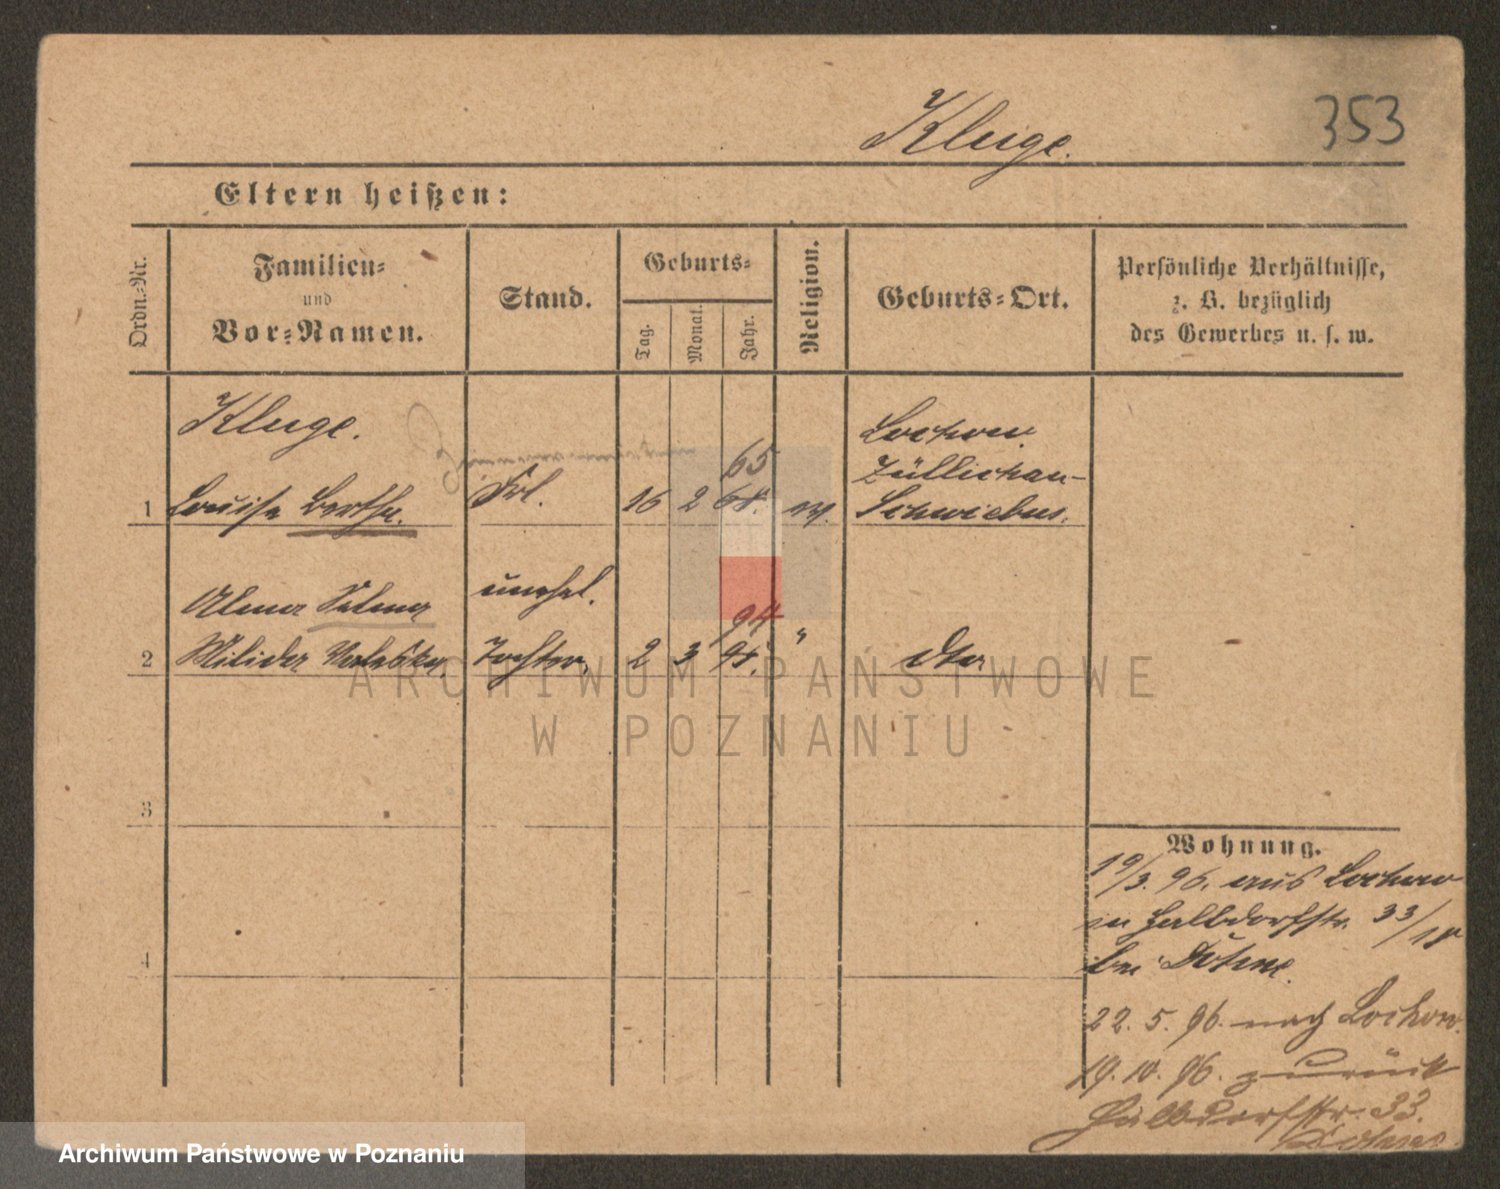 353
Kluge.
Eltern heißen:
Ordn.-Nr.
Familien-
und
Vor-Namen.
Stand.
Geburts-
Tag.
Monat.
Jahr.
Religion.
Geburts-Ort.
Persönliche Verhältnisse,
z. B. bezüglich
des Gewerbes u. s. w.
Kluge.
1 Louise Bertha. Frl. 16 2 65 68. ev.
Lochow
Züllichau-
Schwiebus.
Alma Selma
unehel.
2 Valeska. Tochter, 2 3 94 95. " dto
3
4
Wohnung.
19/3. 96. aus Lochow
in Halbdorfstr. 33/18
bei
22. 5. 96. nach Lochow.
19. 10. 96. zurück
Halbdorfstr. 33.
ARCHIWUM PAŃSTWOWE
W POZNANIU
Archiwum Państwowe w Poznaniu